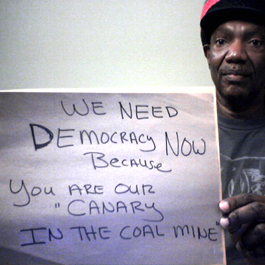 WE NEED
DEMOCRACY NOW
Because
YOU ARE OUR
"CANARY
IN THE COAL MINE"